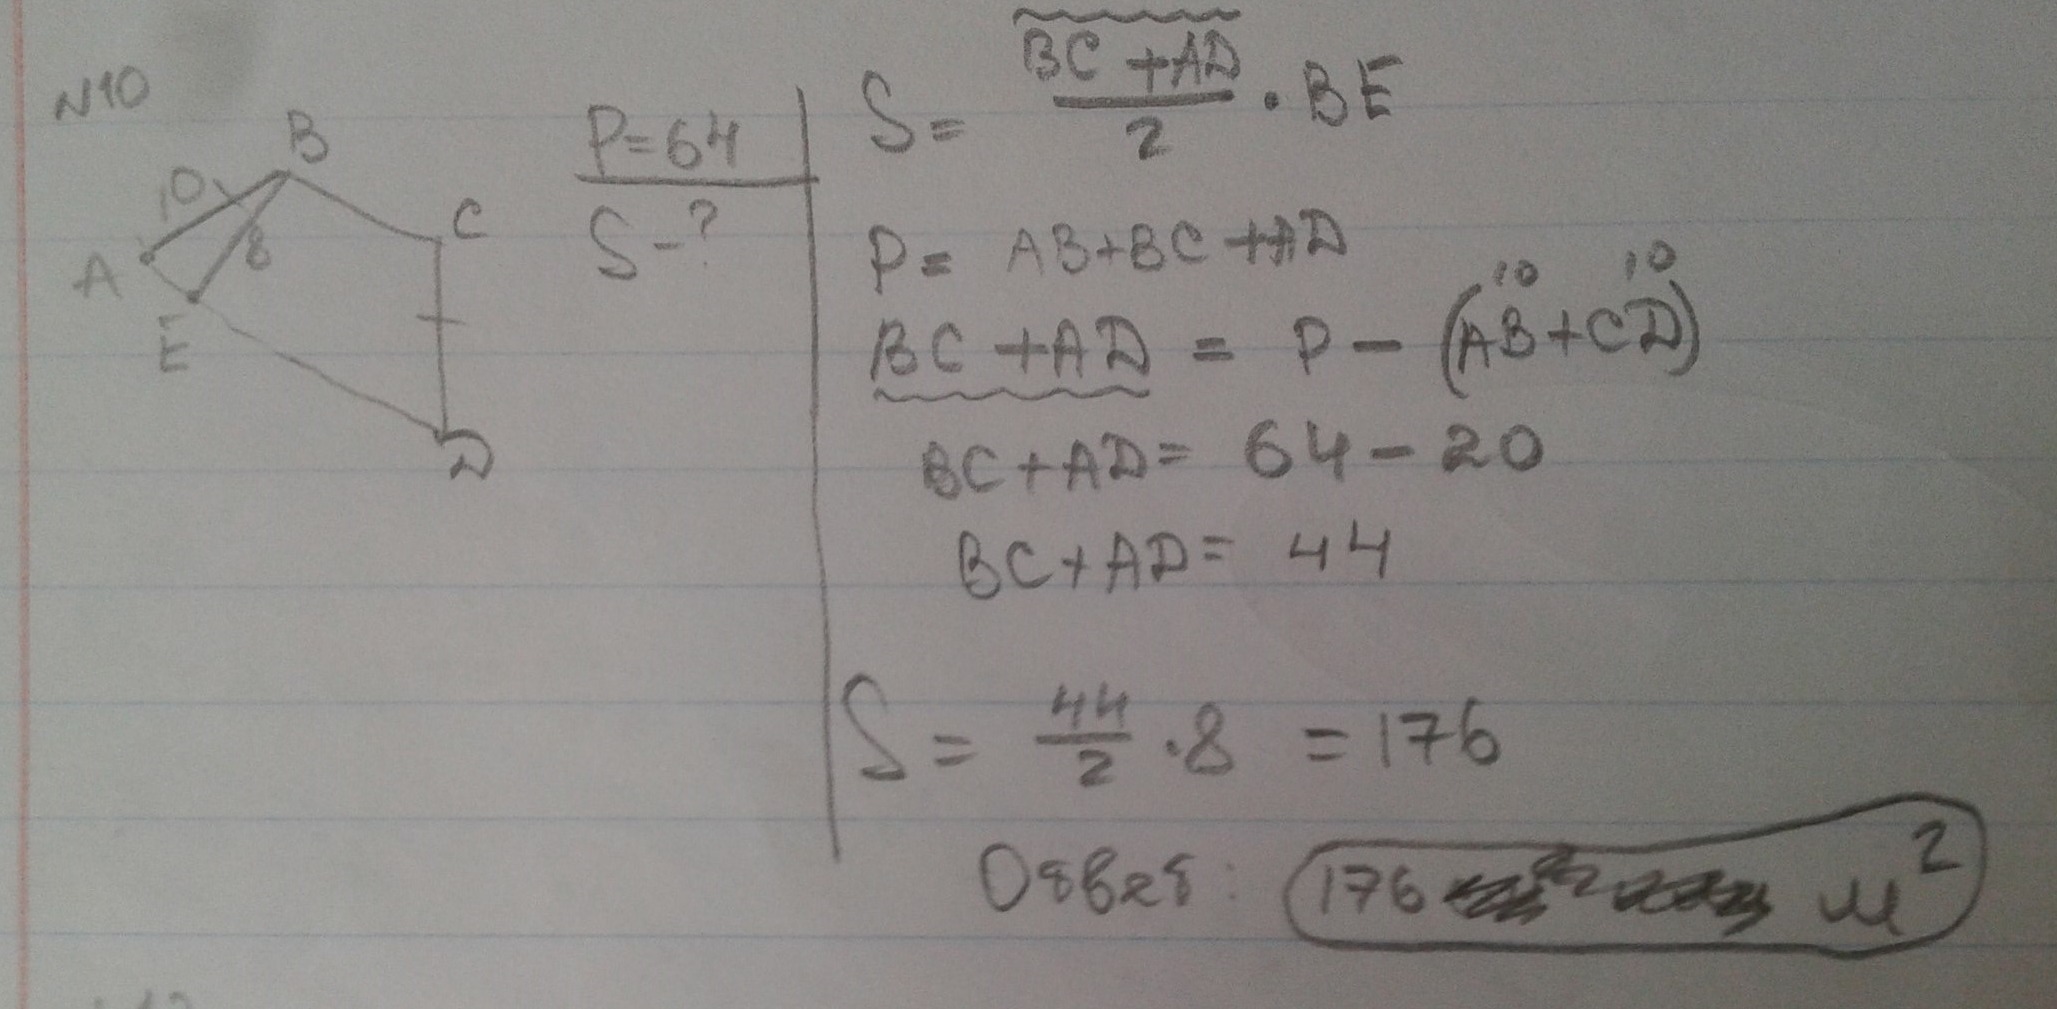 N10
B
10
8
C
A
E
D
P=64
S-?
S = (BC+AD)/2 · BE
P = AB+BC+AD
10 10
BC+AD = P - (AB+CD)
BC+AD = 64 - 20
BC+AD = 44
S = 44/2 · 8 = 176
Ответ: 176 м²